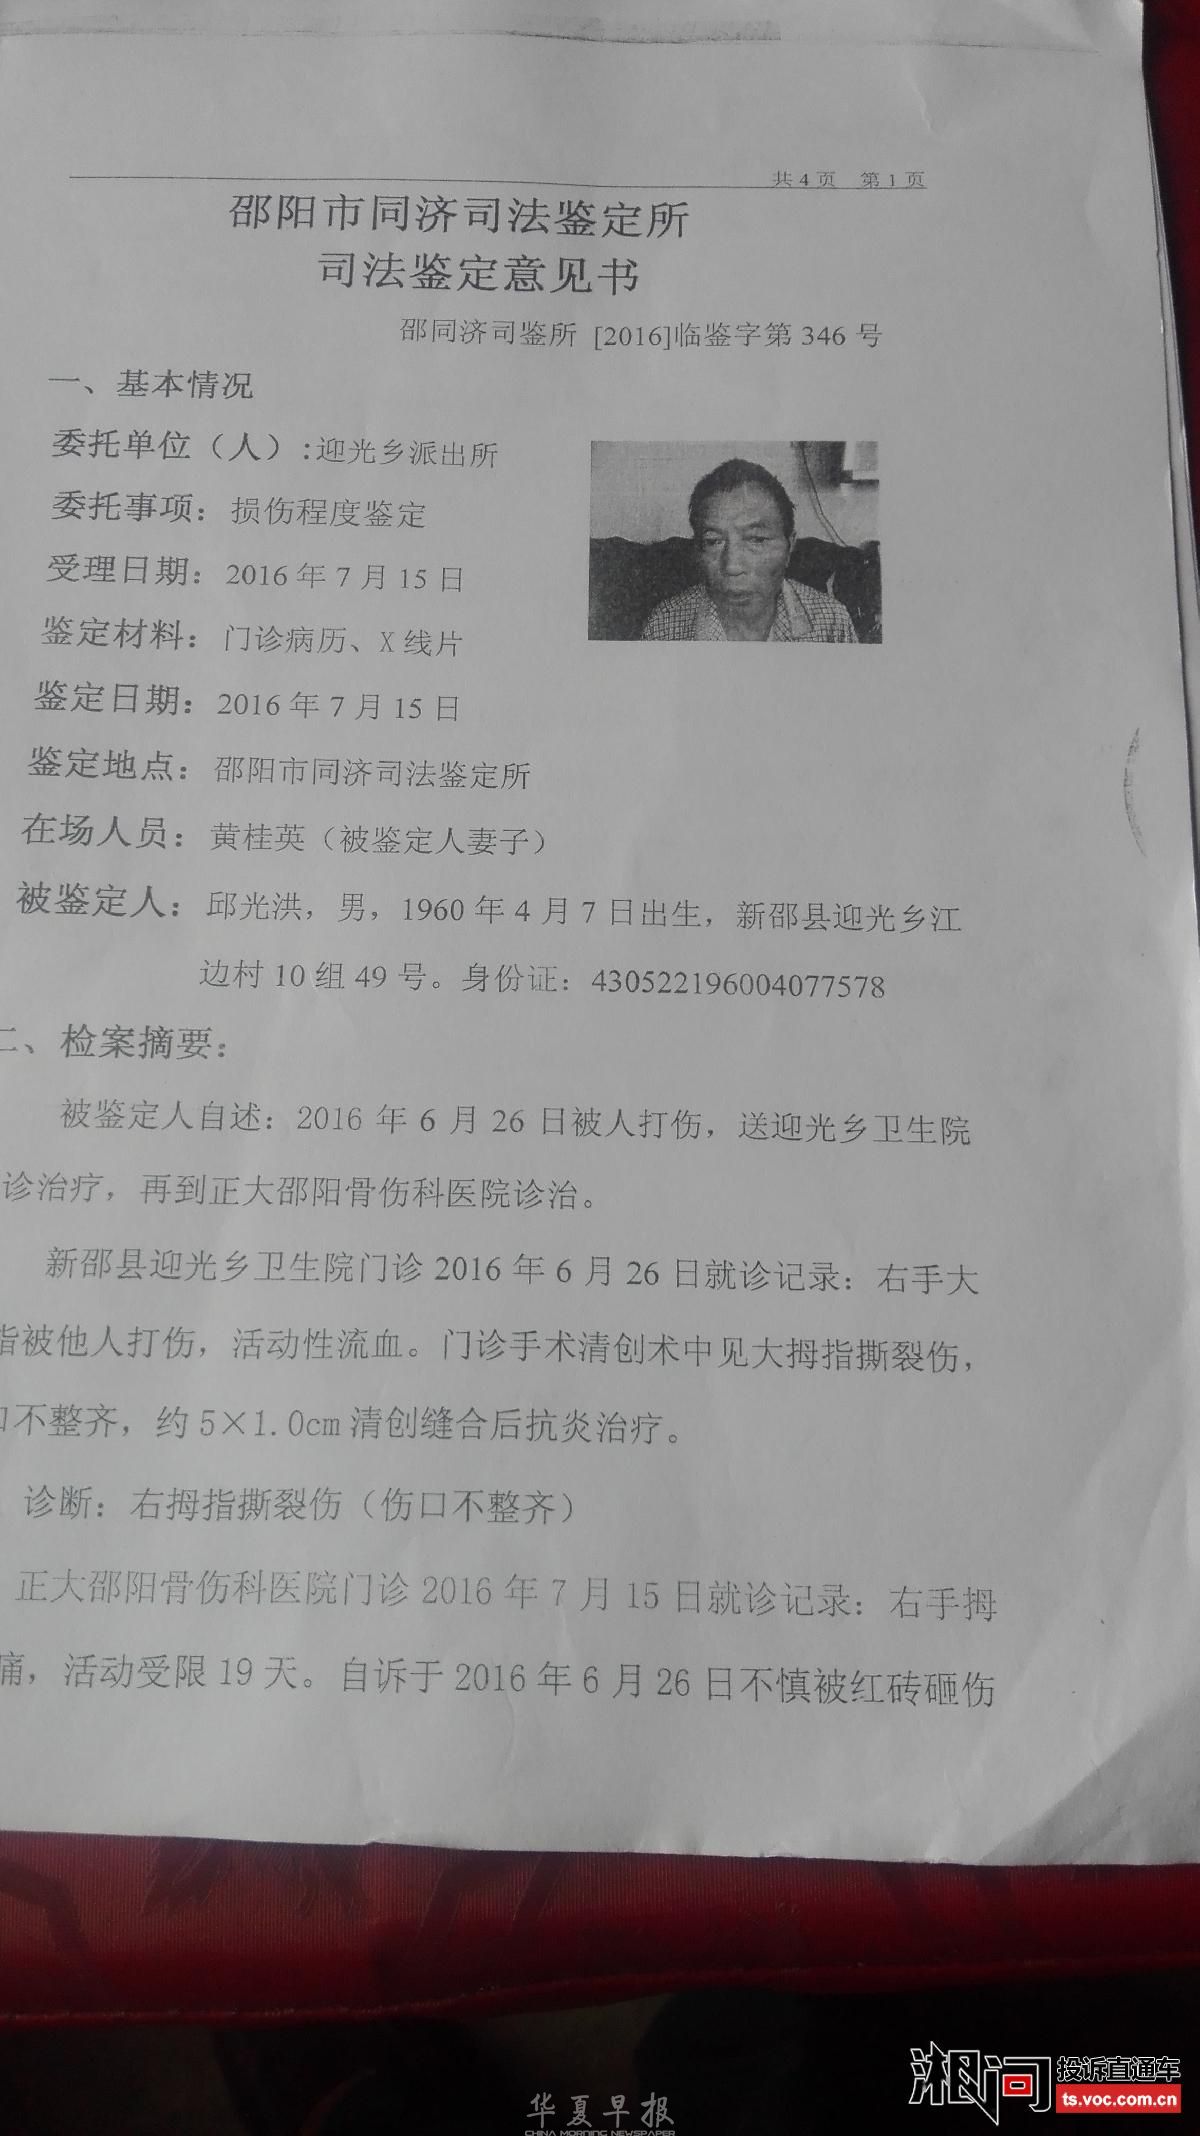 共 4 页 第 1 页
邵阳市同济司法鉴定所
司法鉴定意见书
邵同济司鉴所 [2016]临鉴字第 346 号
一、基本情况
委托单位（人）:迎光乡派出所
委托事项：损伤程度鉴定
受理日期：2016 年 7 月 15 日
鉴定材料：门诊病历、X 线片
鉴定日期：2016 年 7 月 15 日
鉴定地点：邵阳市同济司法鉴定所
在场人员：黄桂英（被鉴定人妻子）
被鉴定人：邱光洪，男，1960 年 4 月 7 日出生，新邵县迎光乡江
边村 10 组 49 号。身份证：430522196004077578
二、检案摘要：
被鉴定人自述：2016 年 6 月 26 日被人打伤，送迎光乡卫生院
诊治疗，再到正大邵阳骨伤科医院诊治。
新邵县迎光乡卫生院门诊 2016 年 6 月 26 日就诊记录：右手大
指被他人打伤，活动性流血。门诊手术清创术中见大拇指撕裂伤，
口不整齐，约 5×1.0cm 清创缝合后抗炎治疗。
诊断：右拇指撕裂伤（伤口不整齐）
正大邵阳骨伤科医院门诊 2016 年 7 月 15 日就诊记录：右手拇
痛，活动受限 19 天。自诉于 2016 年 6 月 26 日不慎被红砖砸伤
湘问 投诉直通车
ts.voc.com.cn
华夏早报
CHINA MORNING NEWSPAPER